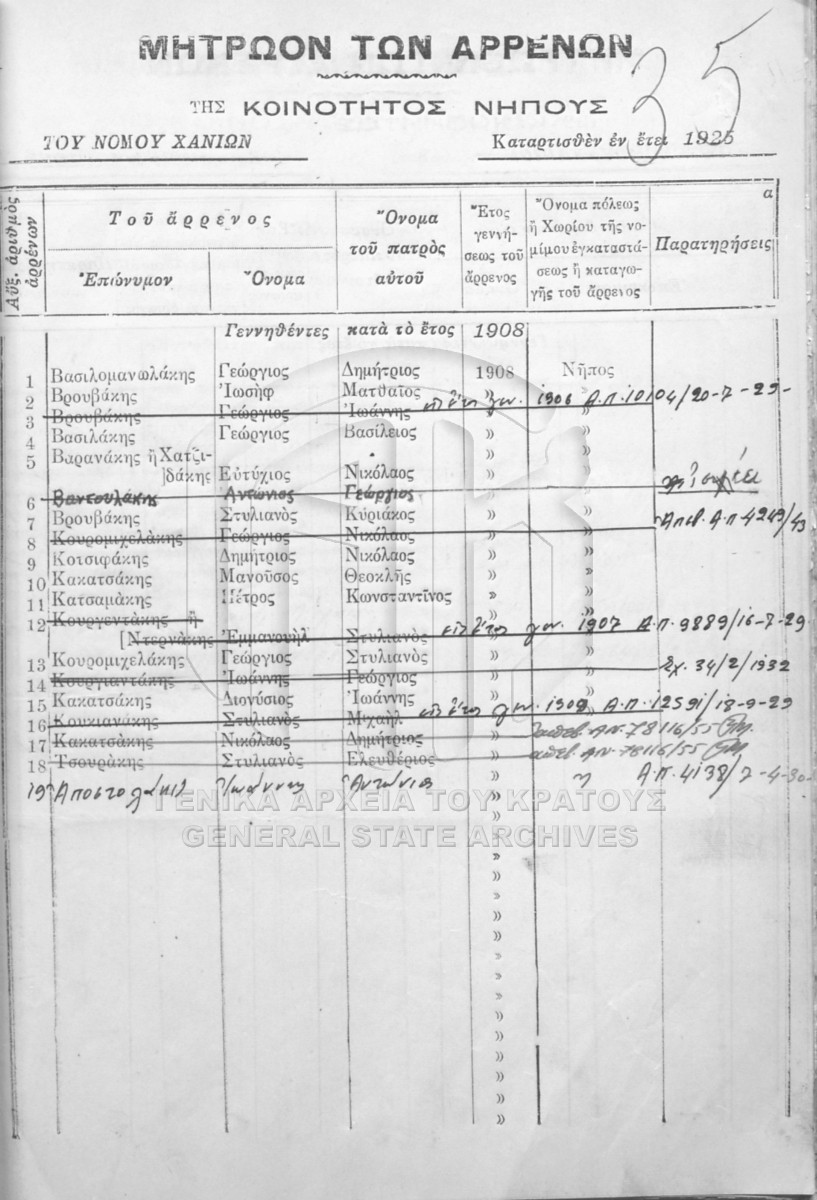 35
ΜΗΤΡΩΟΝ ΤΩΝ ΑΡΡΕΝΩΝ
ΤΗΣ ΚΟΙΝΟΤΗΤΟΣ ΝΗΠΟΥΣ
ΤΟΥ ΝΟΜΟΥ ΧΑΝΙΩΝ Καταρτισθὲν ἐν ἔτει 1925
α
Αὔξ. ἀριθμὸς ἀρρένων
Τοῦ ἄρρενος
Ἐπώνυμον Ὄνομα
Ὄνομα τοῦ πατρὸς αὐτοῦ
Ἔτος γεννήσεως τοῦ ἄρρενος
Ὄνομα πόλεως ἢ Χωρίου τῆς νομίμου ἐγκαταστάσεως ἢ καταγωγῆς τοῦ ἄρρενος
Παρατηρήσεις
Γεννηθέντες κατὰ τὸ ἔτος 1908
1 Βασιλομανωλάκης Γεώργιος Δημήτριος 1908 Νῆπος
2 Βρουβάκης Ἰωσὴφ Ματθαῖος » »
3 Βρουβάκης Γεώργιος Ἰωάννης εἰς ἔτος γεν. 1906 Α.Π. 10104/20-7-29-
4 Βασιλάκης Γεώργιος Βασίλειος » »
5 Βαρανάκης ἢ Χατζι-
]δάκης Εὐτύχιος Νικόλαος » »
6 Βαντουλάκης Ἀντώνιος Γεώργιος » »
7 Βρουβάκης Στυλιανὸς Κυριάκος » »
8 Κουρομιχελάκης Γεώργιος Νικόλαος » » Ἀπεβ. Α.Π 4249/43
9 Κοτσιφάκης Δημήτριος Νικόλαος » »
10 Κακατσάκης Μανοῦσος Θεοκλῆς » »
11 Κατσαμάκης Πέτρος Κωνσταντῖνος » »
12 Κουργεντάκης ἢ
[Ντερνάκης Ἐμμανουὴλ Στυλιανὸς εἰς ἔτος γεν. 1907 Α.Π. 9889/16-7-29
13 Κουρομιχελάκης Γεώργιος Στυλιανὸς » »
14 Κουργιαντάκης Ἰωάννης Γεώργιος » » Σχ. 34/2/1932
15 Κακατσάκης Διονύσιος Ἰωάννης » »
16 Κουκιανάκης Στυλιανὸς Μιχαὴλ εἰς ἔτος γεν. 1909 Α.Π. 12591/18-9-29
17 Κακατσάκης Νικόλαος Δημήτριος » ἀπεβ. ΑΠ. 78116/55
18 Τσουράκης Στυλιανὸς Ἐλευθέριος » ἀπεβ. ΑΠ. 78116/55
19 Ἀποστολάκις Ἰωάννης Ἀντώνιος » Α.Π. 4138/7-4-30-
ΓΕΝΙΚΑ ΑΡΧΕΙΑ ΤΟΥ ΚΡΑΤΟΥΣ
GENERAL STATE ARCHIVES